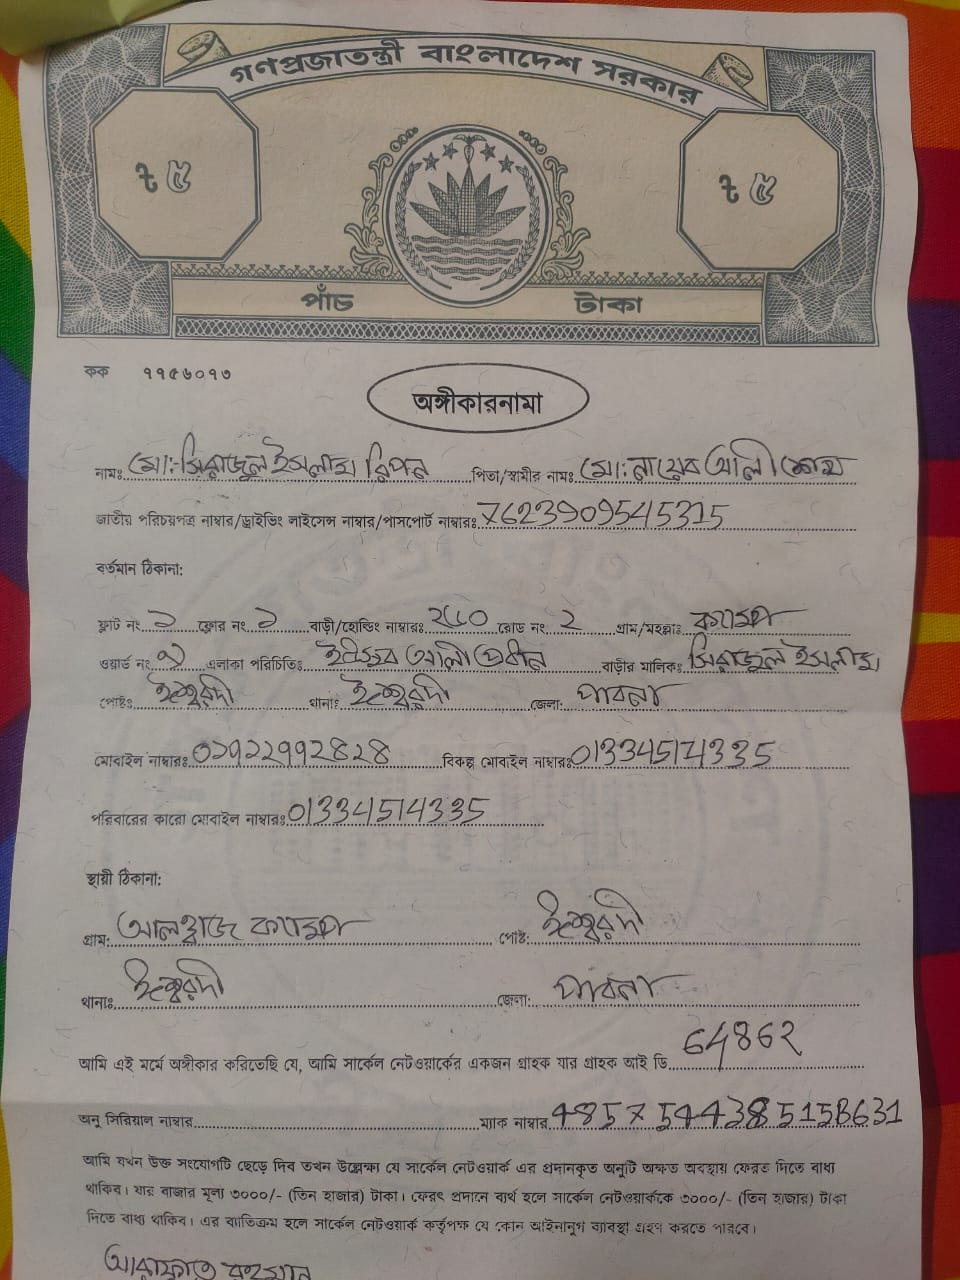 গণপ্রজাতন্ত্রী বাংলাদেশ সরকার
৳ ৫ ৳ ৫
পাঁচ টাকা
কক ৭৭৫৬০৭৩
অঙ্গীকারনামা
নামঃ মো:-সিরাজুল ইসলাম রিপন পিতা/স্বামীর নাম: মো: নায়েব আলী শেখ
জাতীয় পরিচয়পত্র নাম্বার/ড্রাইভিং লাইসেন্স নাম্বার/পাসপোর্ট নাম্বারঃ 7623909545315
বর্তমান ঠিকানা:
ফ্লাট নং ১ ফ্লোর নং ১ বাড়ী/হোল্ডিং নাম্বারঃ রোড নং ২ গ্রাম/মহল্লাঃ ক্যাম্প
ওয়ার্ড নং এলাকা পরিচিতিঃ আলী বাড়ীর মালিকঃ সিরাজুল ইসলাম
পোষ্টঃ ঈশ্বরদী থানাঃ ঈশ্বরদী জেলা: পাবনা
মোবাইল নাম্বারঃ ০১৭২২৭৭২৪২৪ বিকল্প মোবাইল নাম্বারঃ 01334514335
পরিবারের কারো মোবাইল নাম্বারঃ 01334514335
স্থায়ী ঠিকানা:
গ্রাম: আলহাজ ক্যাম্প পোষ্ট: ঈশ্বরদী
থানাঃ ঈশ্বরদী জেলা: পাবনা
আমি এই মর্মে অঙ্গীকার করিতেছি যে, আমি সার্কেল নেটওয়ার্কের একজন গ্রাহক যার গ্রাহক আই ডি
অনু সিরিয়াল নাম্বার ম্যাক নাম্বার
আমি যখন উক্ত সংযোগটি ছেড়ে দিব তখন উল্লেক্ষ্য যে সার্কেল নেটওয়ার্ক এর প্রদানকৃত অনুটি অক্ষত অবস্থায় ফেরত দিতে বাধ্য
থাকিব। যার বাজার মূল্য ৩০০০/- (তিন হাজার) টাকা। ফেরৎ প্রদানে ব্যর্থ হলে সার্কেল নেটওয়ার্ককে ৩০০০/- (তিন হাজার) টাকা
দিতে বাধ্য থাকিব। এর ব্যতিক্রম হলে সার্কেল নেটওয়ার্ক কর্তৃপক্ষ যে কোন আইনানুগ ব্যবস্থা গ্রহণ করতে পারবে।
আরাফাত রহমান